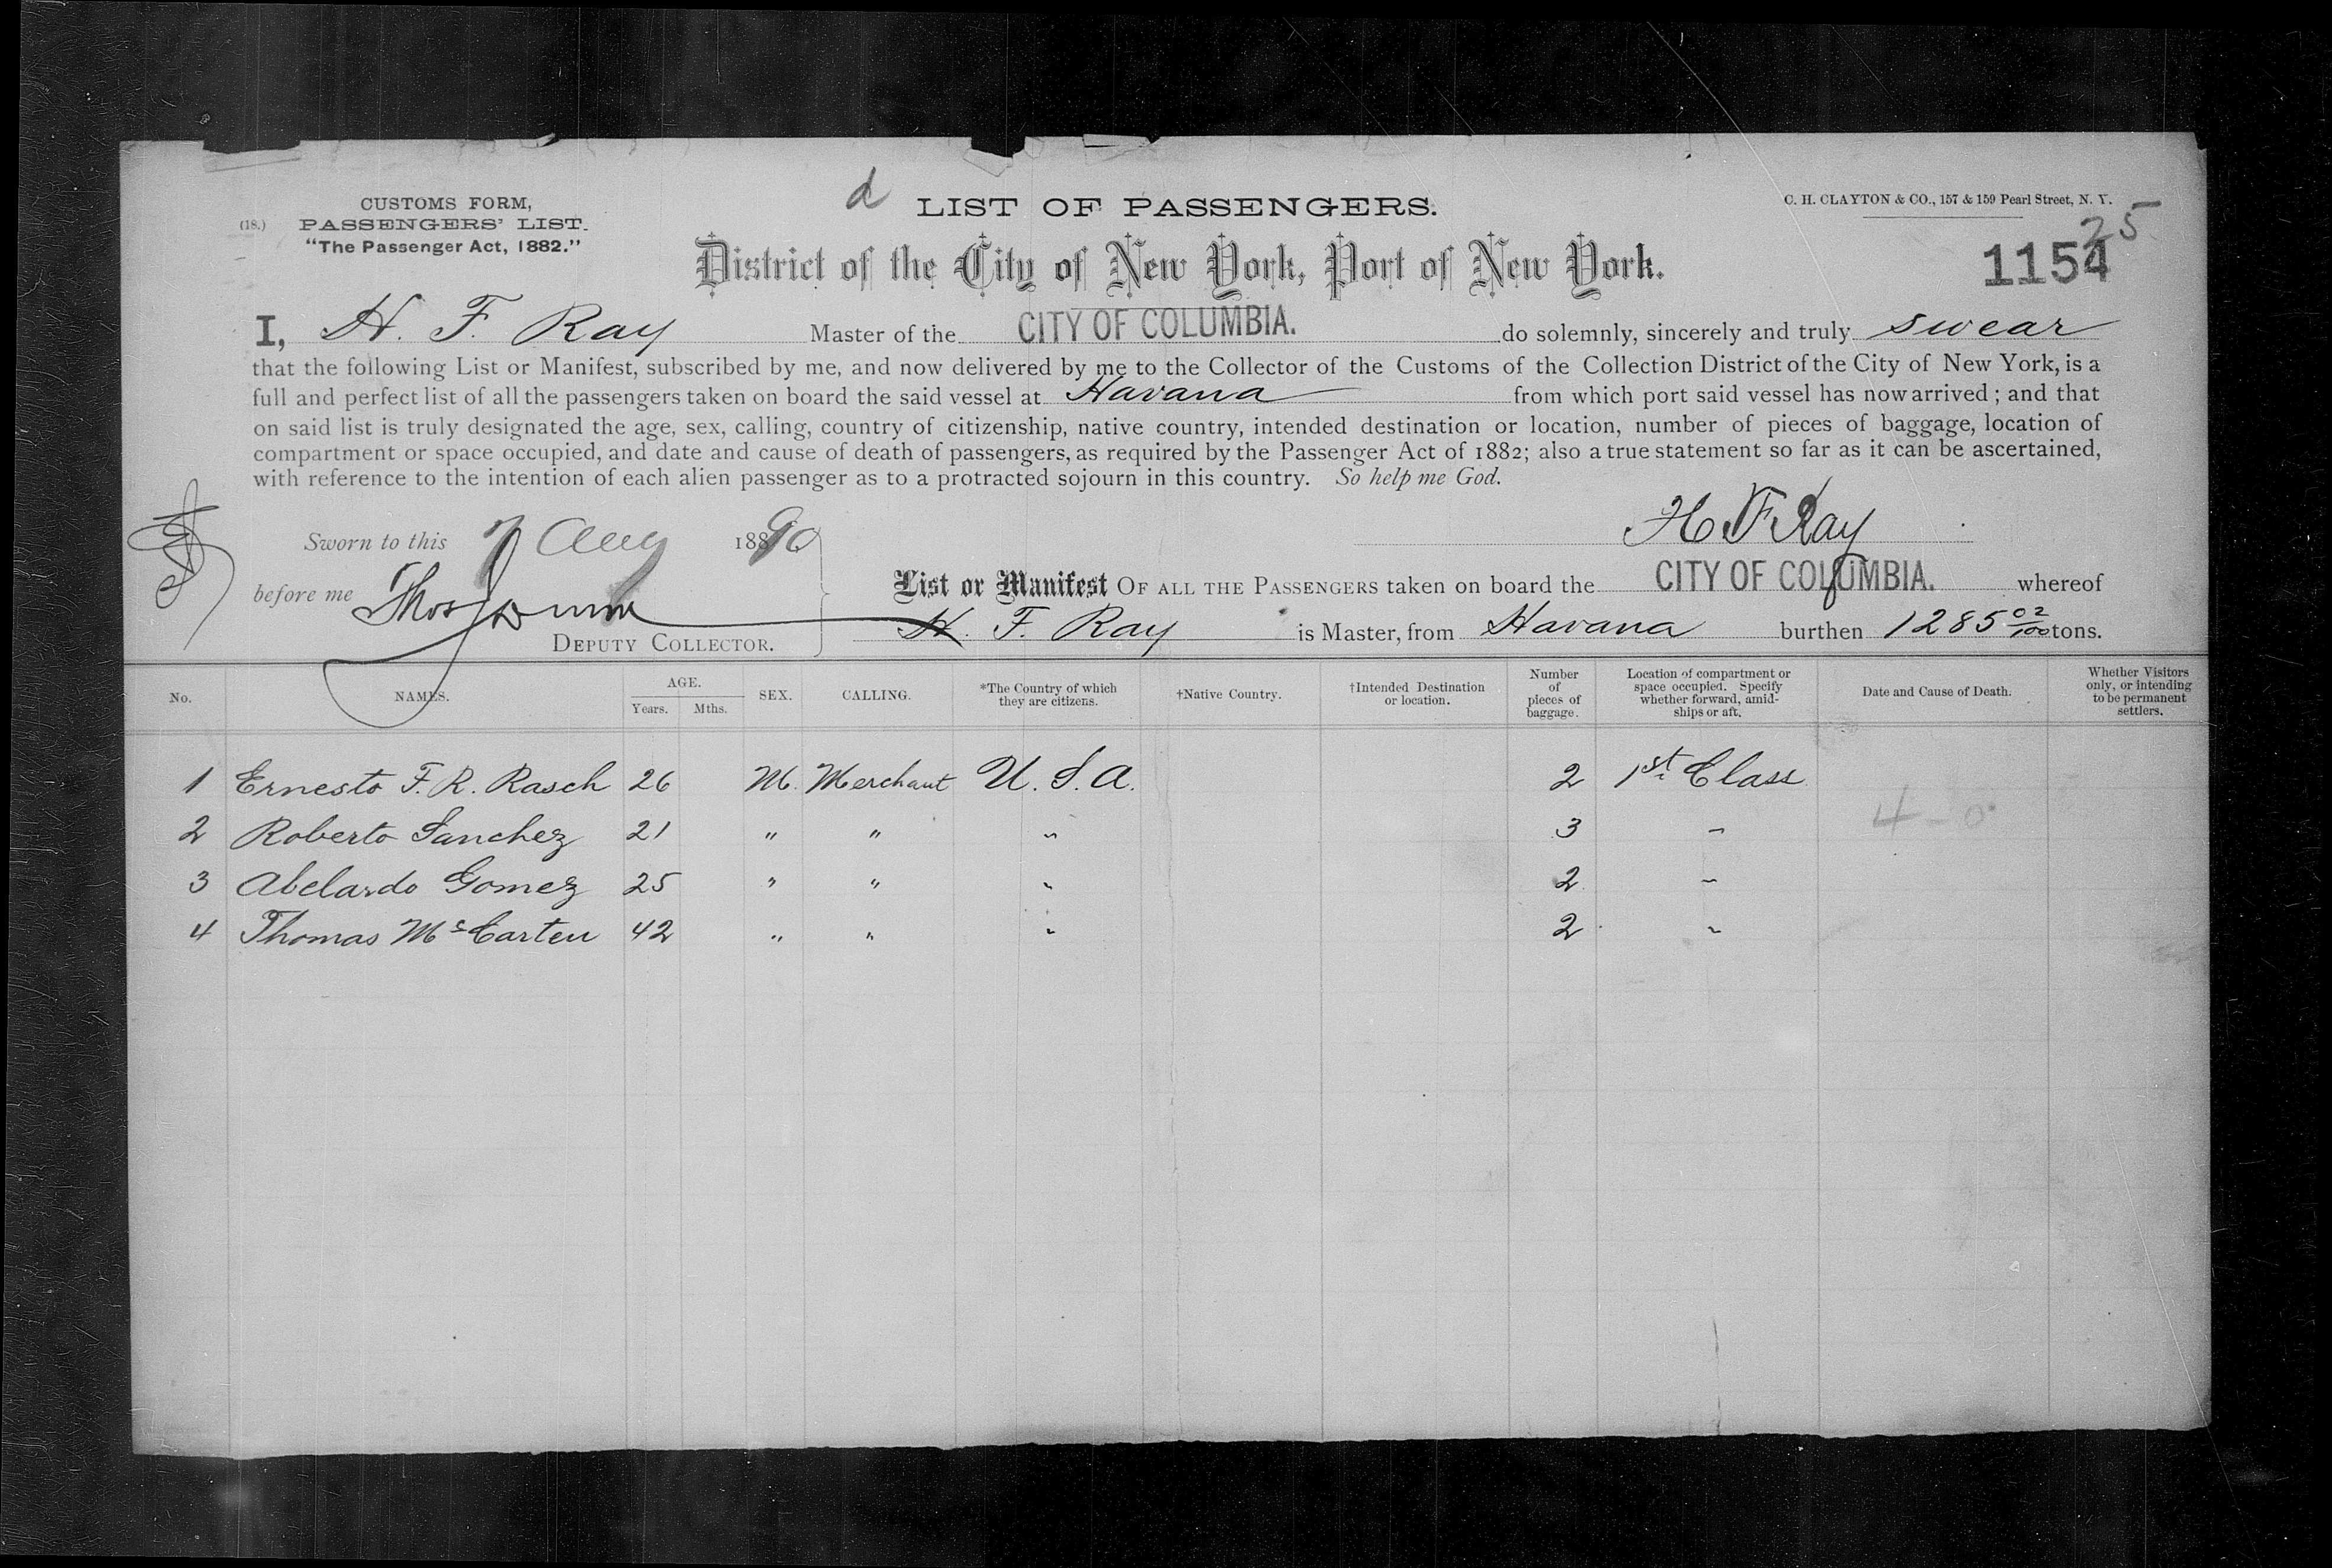 CUSTOMS FORM,
(18.) PASSENGERS' LIST.
"The Passenger Act, 1882."
d LIST OF PASSENGERS.
C. H. CLAYTON & CO., 157 & 159 Pearl Street, N. Y.
25
District of the City of New York, Port of New York.
1154
I, H. F. Ray Master of the CITY OF COLUMBIA. do solemnly, sincerely and truly swear
that the following List or Manifest, subscribed by me, and now delivered by me to the Collector of the Customs of the Collection District of the City of New York, is a
full and perfect list of all the passengers taken on board the said vessel at Havana from which port said vessel has now arrived; and that
on said list is truly designated the age, sex, calling, country of citizenship, native country, intended destination or location, number of pieces of baggage, location of
compartment or space occupied, and date and cause of death of passengers, as required by the Passenger Act of 1882; also a true statement so far as it can be ascertained,
with reference to the intention of each alien passenger as to a protracted sojourn in this country. So help me God.
Sworn to this 7 Aug 1890
H. F. Ray
before me Thos Dunn
DEPUTY COLLECTOR.
List or Manifest OF ALL THE PASSENGERS taken on board the CITY OF COLUMBIA. whereof
H. F. Ray is Master, from Havana burthen 1285 02/100 tons.
No. NAMES. AGE. Years. Mths. SEX. CALLING. *The Country of which they are citizens. †Native Country. †Intended Destination or location. Number of pieces of baggage. Location of compartment or space occupied. Specify whether forward, amidships or aft. Date and Cause of Death. Whether Visitors only, or intending to be permanent settlers.
1 Ernesto F. R. Rasch 26 M. Merchant U. S. A. 2 1st Class
2 Roberto Sanchez 21 " " " 3 " 4-0
3 Abelardo Gomez 25 " " " 2 "
4 Thomas McCarten 42 " " " 2 "